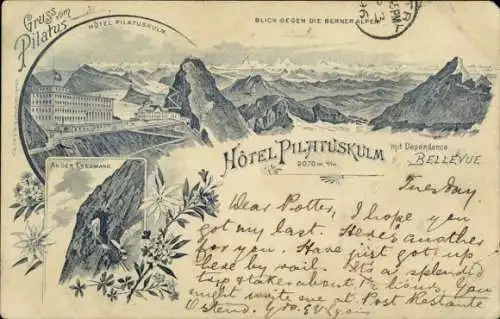 Gruss vom
Pilatus
HÔTEL PILATUSKULM.
BLICK GEGEN DIE BERNER ALPEN
HÔTEL PILATUSKULM
2070 m. ü/m.
mit Dependance
BELLEVUE
AN DER ESELWAND.
Tuesday
Dear Potter, I hope you
got my last. Here's another
for you. Have just got up
here by rail. It's a splendid
trip & takes about 1½ hours. You
might write me at Post Restante
Ostend.